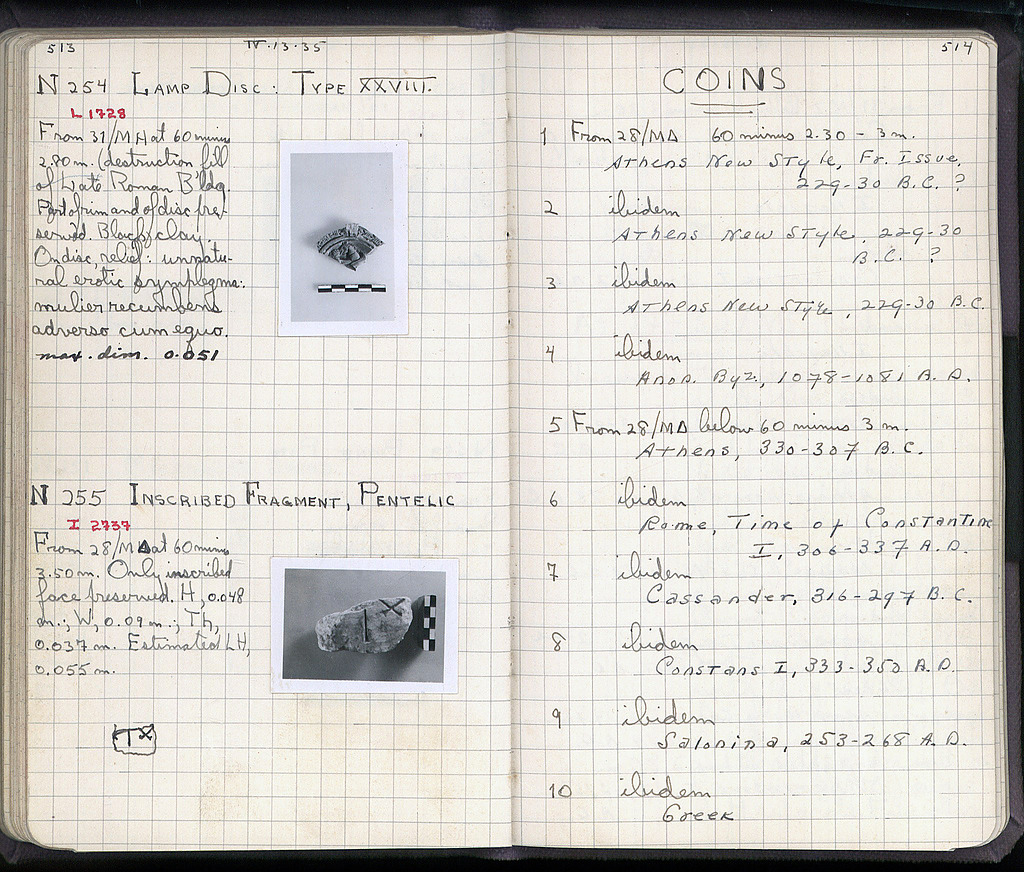 513 IV.13.35
N 254 LAMP DISC: TYPE XXVIII.
L 1728
From 31/MΔ at 60 minus
2.80 m. (destruction fill
of Late Roman B'ldg.
Part of rim and of disc pre-
served. Black clay.
On disc, relief: unnatu-
ral erotic symplegma:
mulier recumbens
adverso cum equo.
max. dim. 0.051
N 255 INSCRIBED FRAGMENT, PENTELIC
I 2737
From 28/MΔ at 60 minus
3.50 m. Only inscribed
face preserved. H, 0.048
m.; W, 0.09 m.; Th,
0.037 m. Estimated LH,
0.055 m.
514
COINS
1 From 28/MΔ 60 minus 2.30 - 3 m.
Athens New Style, Fr. Issue,
229-30 B.C. ?
2 ibidem
Athens New Style, 229-30
B.C. ?
3 ibidem
Athens New Style, 229-30 B.C.
4 ibidem
Anon. Byz., 1078-1081 A.D.
5 From 28/MΔ below 60 minus 3 m.
Athens, 330-307 B.C.
6 ibidem
Rome, Time of Constantine
I, 306-337 A.D.
7 ibidem
Cassander, 316-297 B.C.
8 ibidem
Constans I, 333-350 A.D.
9 ibidem
Salonina, 253-268 A.D.
10 ibidem
Greek